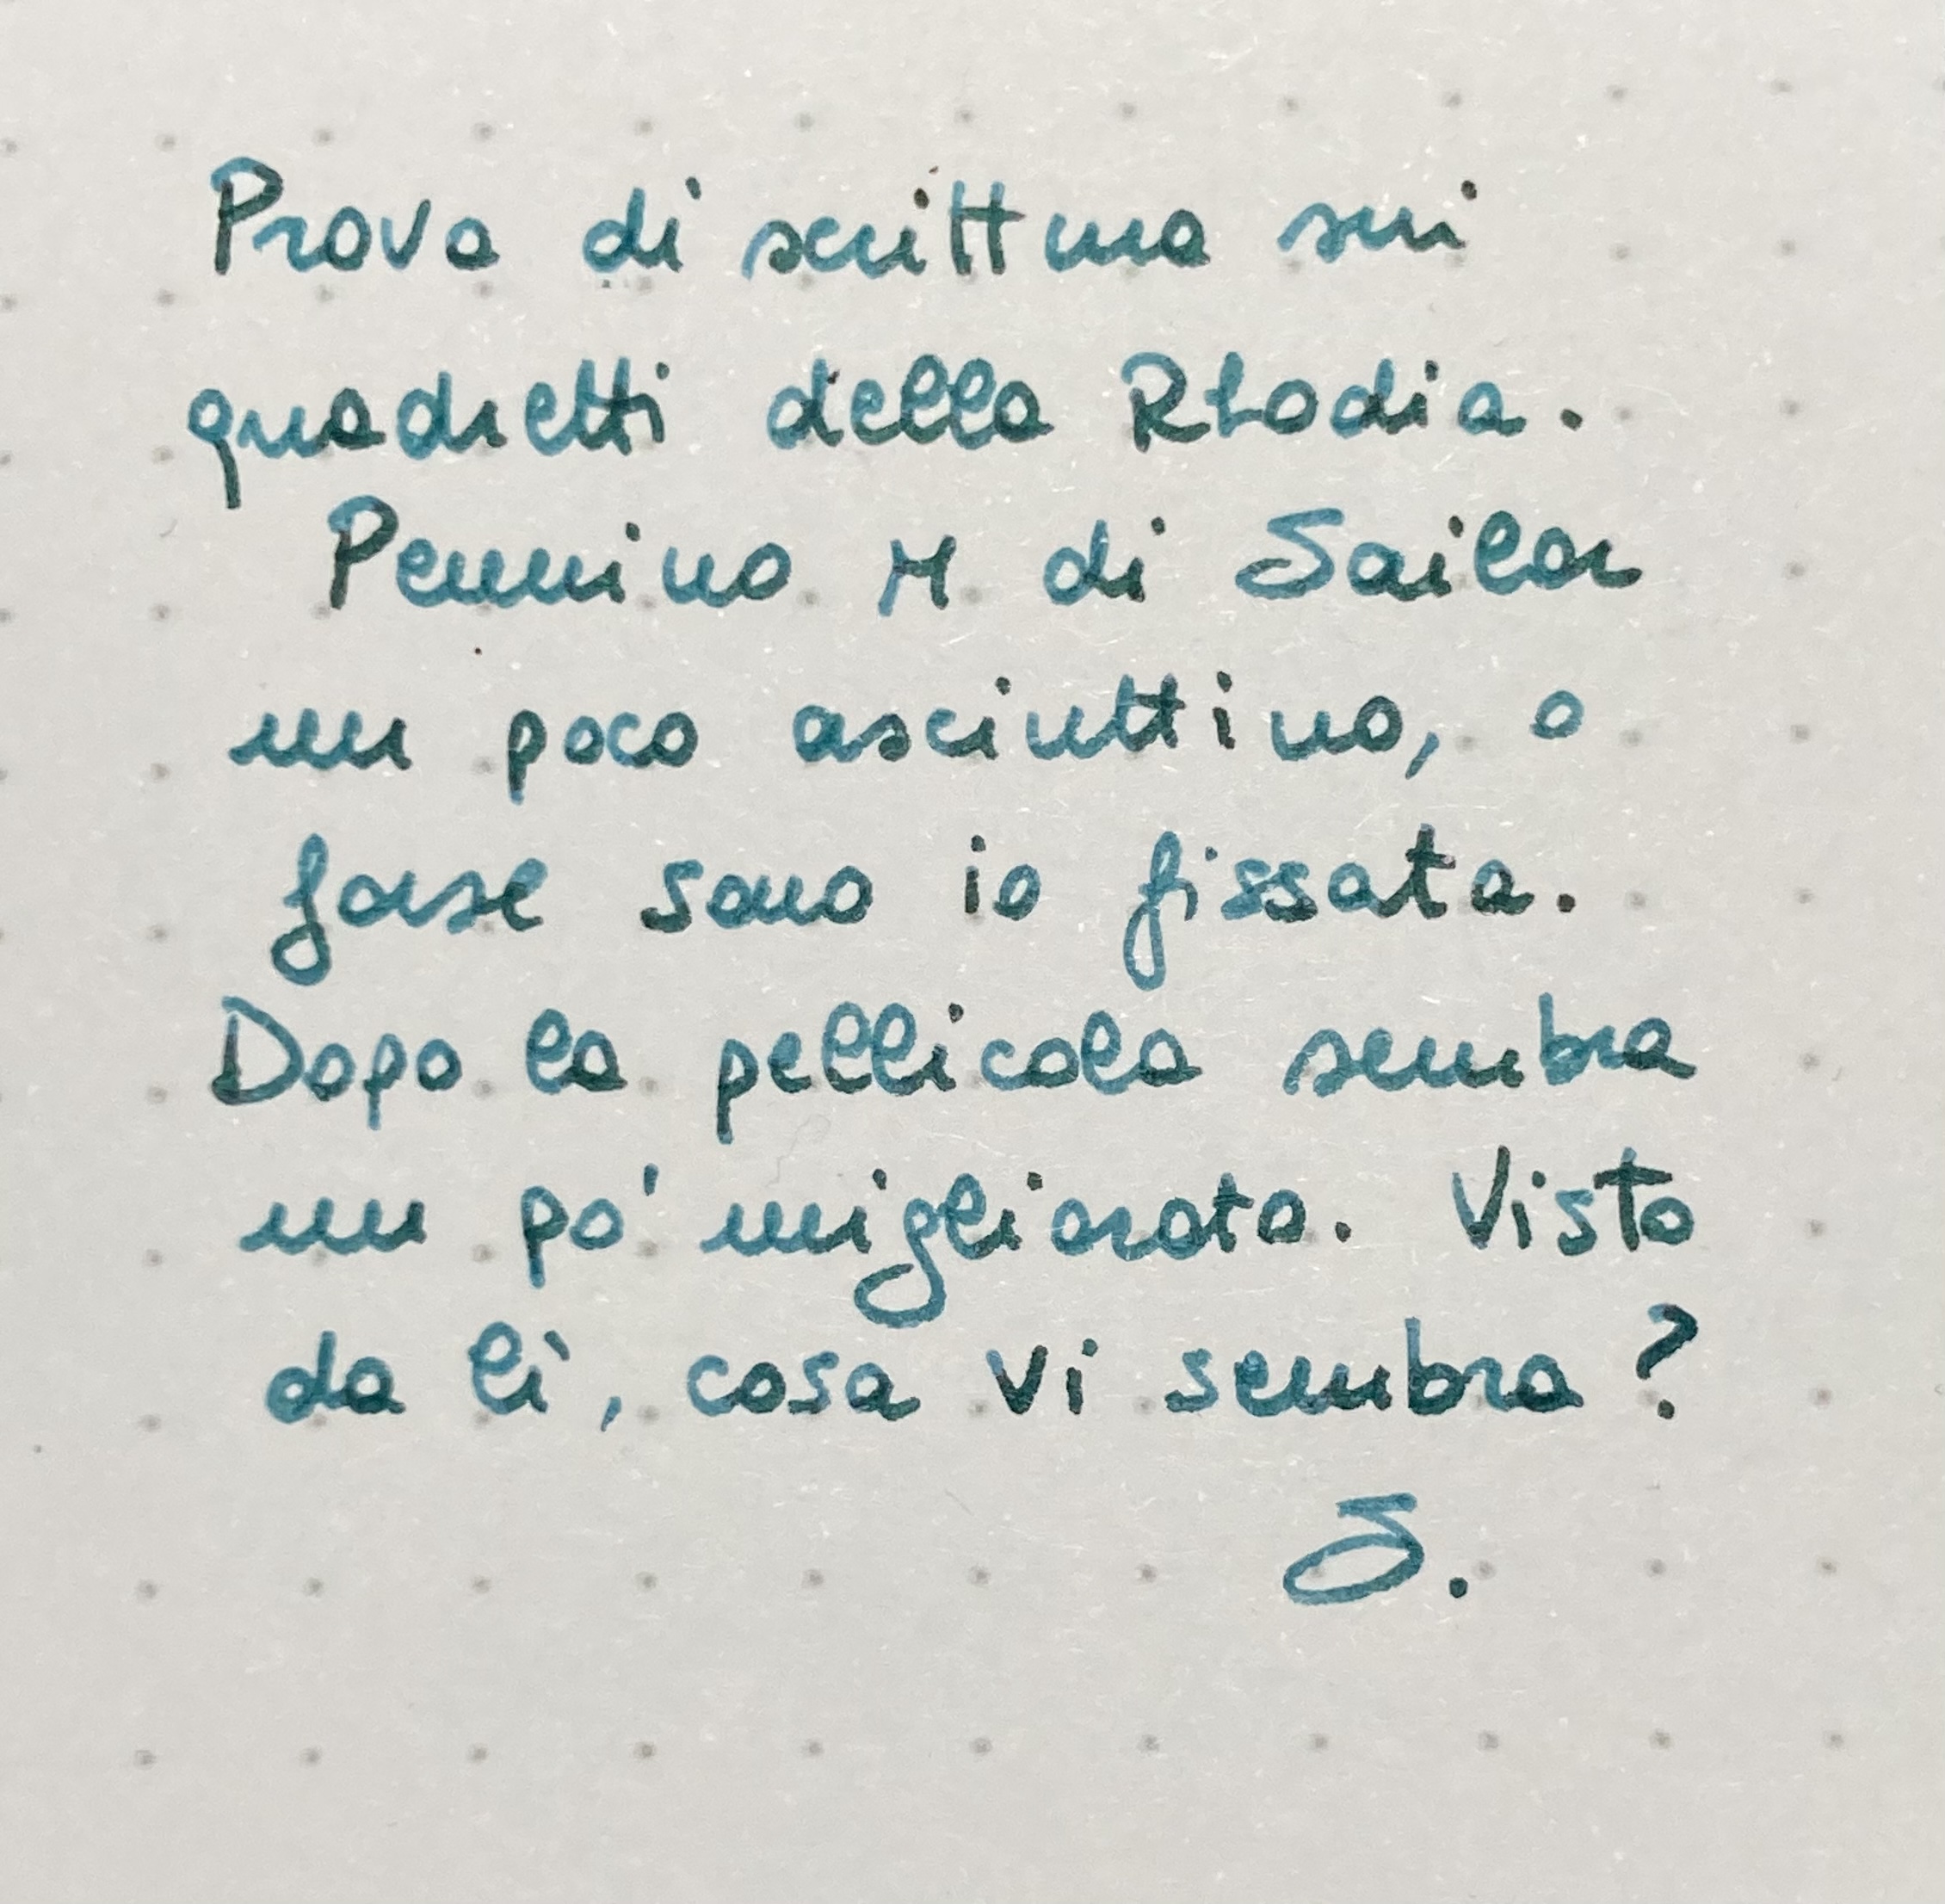 Prova di scrittura sui
quadretti della Rhodia.
Pennino M di Sailor
un poco asciuttino, o
forse sono io fissata.
Dopo la pellicola sembra
un po' migliorata. Visto
da lì, cosa vi sembra?
S.